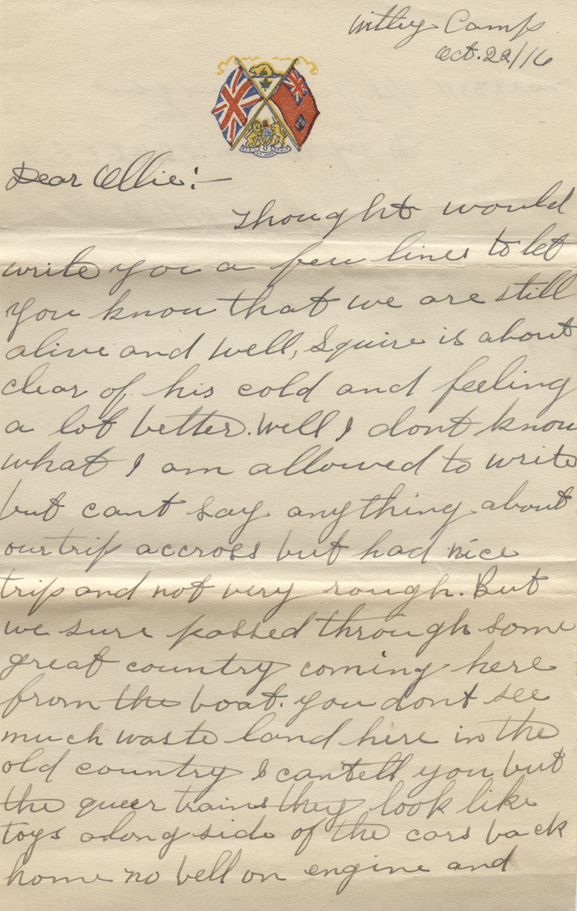 Witley Camp
Oct. 22/16
Dear Ollie:-
Thought would
write you a few lines to let
you know that we are still
alive and well, Squire is about
clear of his cold and feeling
a lot better. Well I dont know
what I am allowed to write
but cant say anything about
our trip accross but had nice
trip and not very rough. But
we sure passed through some
great country coming here
from the boat. you dont see
much waste land here in the
old country I can tell you but
the queer trains they look like
toys along side of the cars back
home no bell on engine and